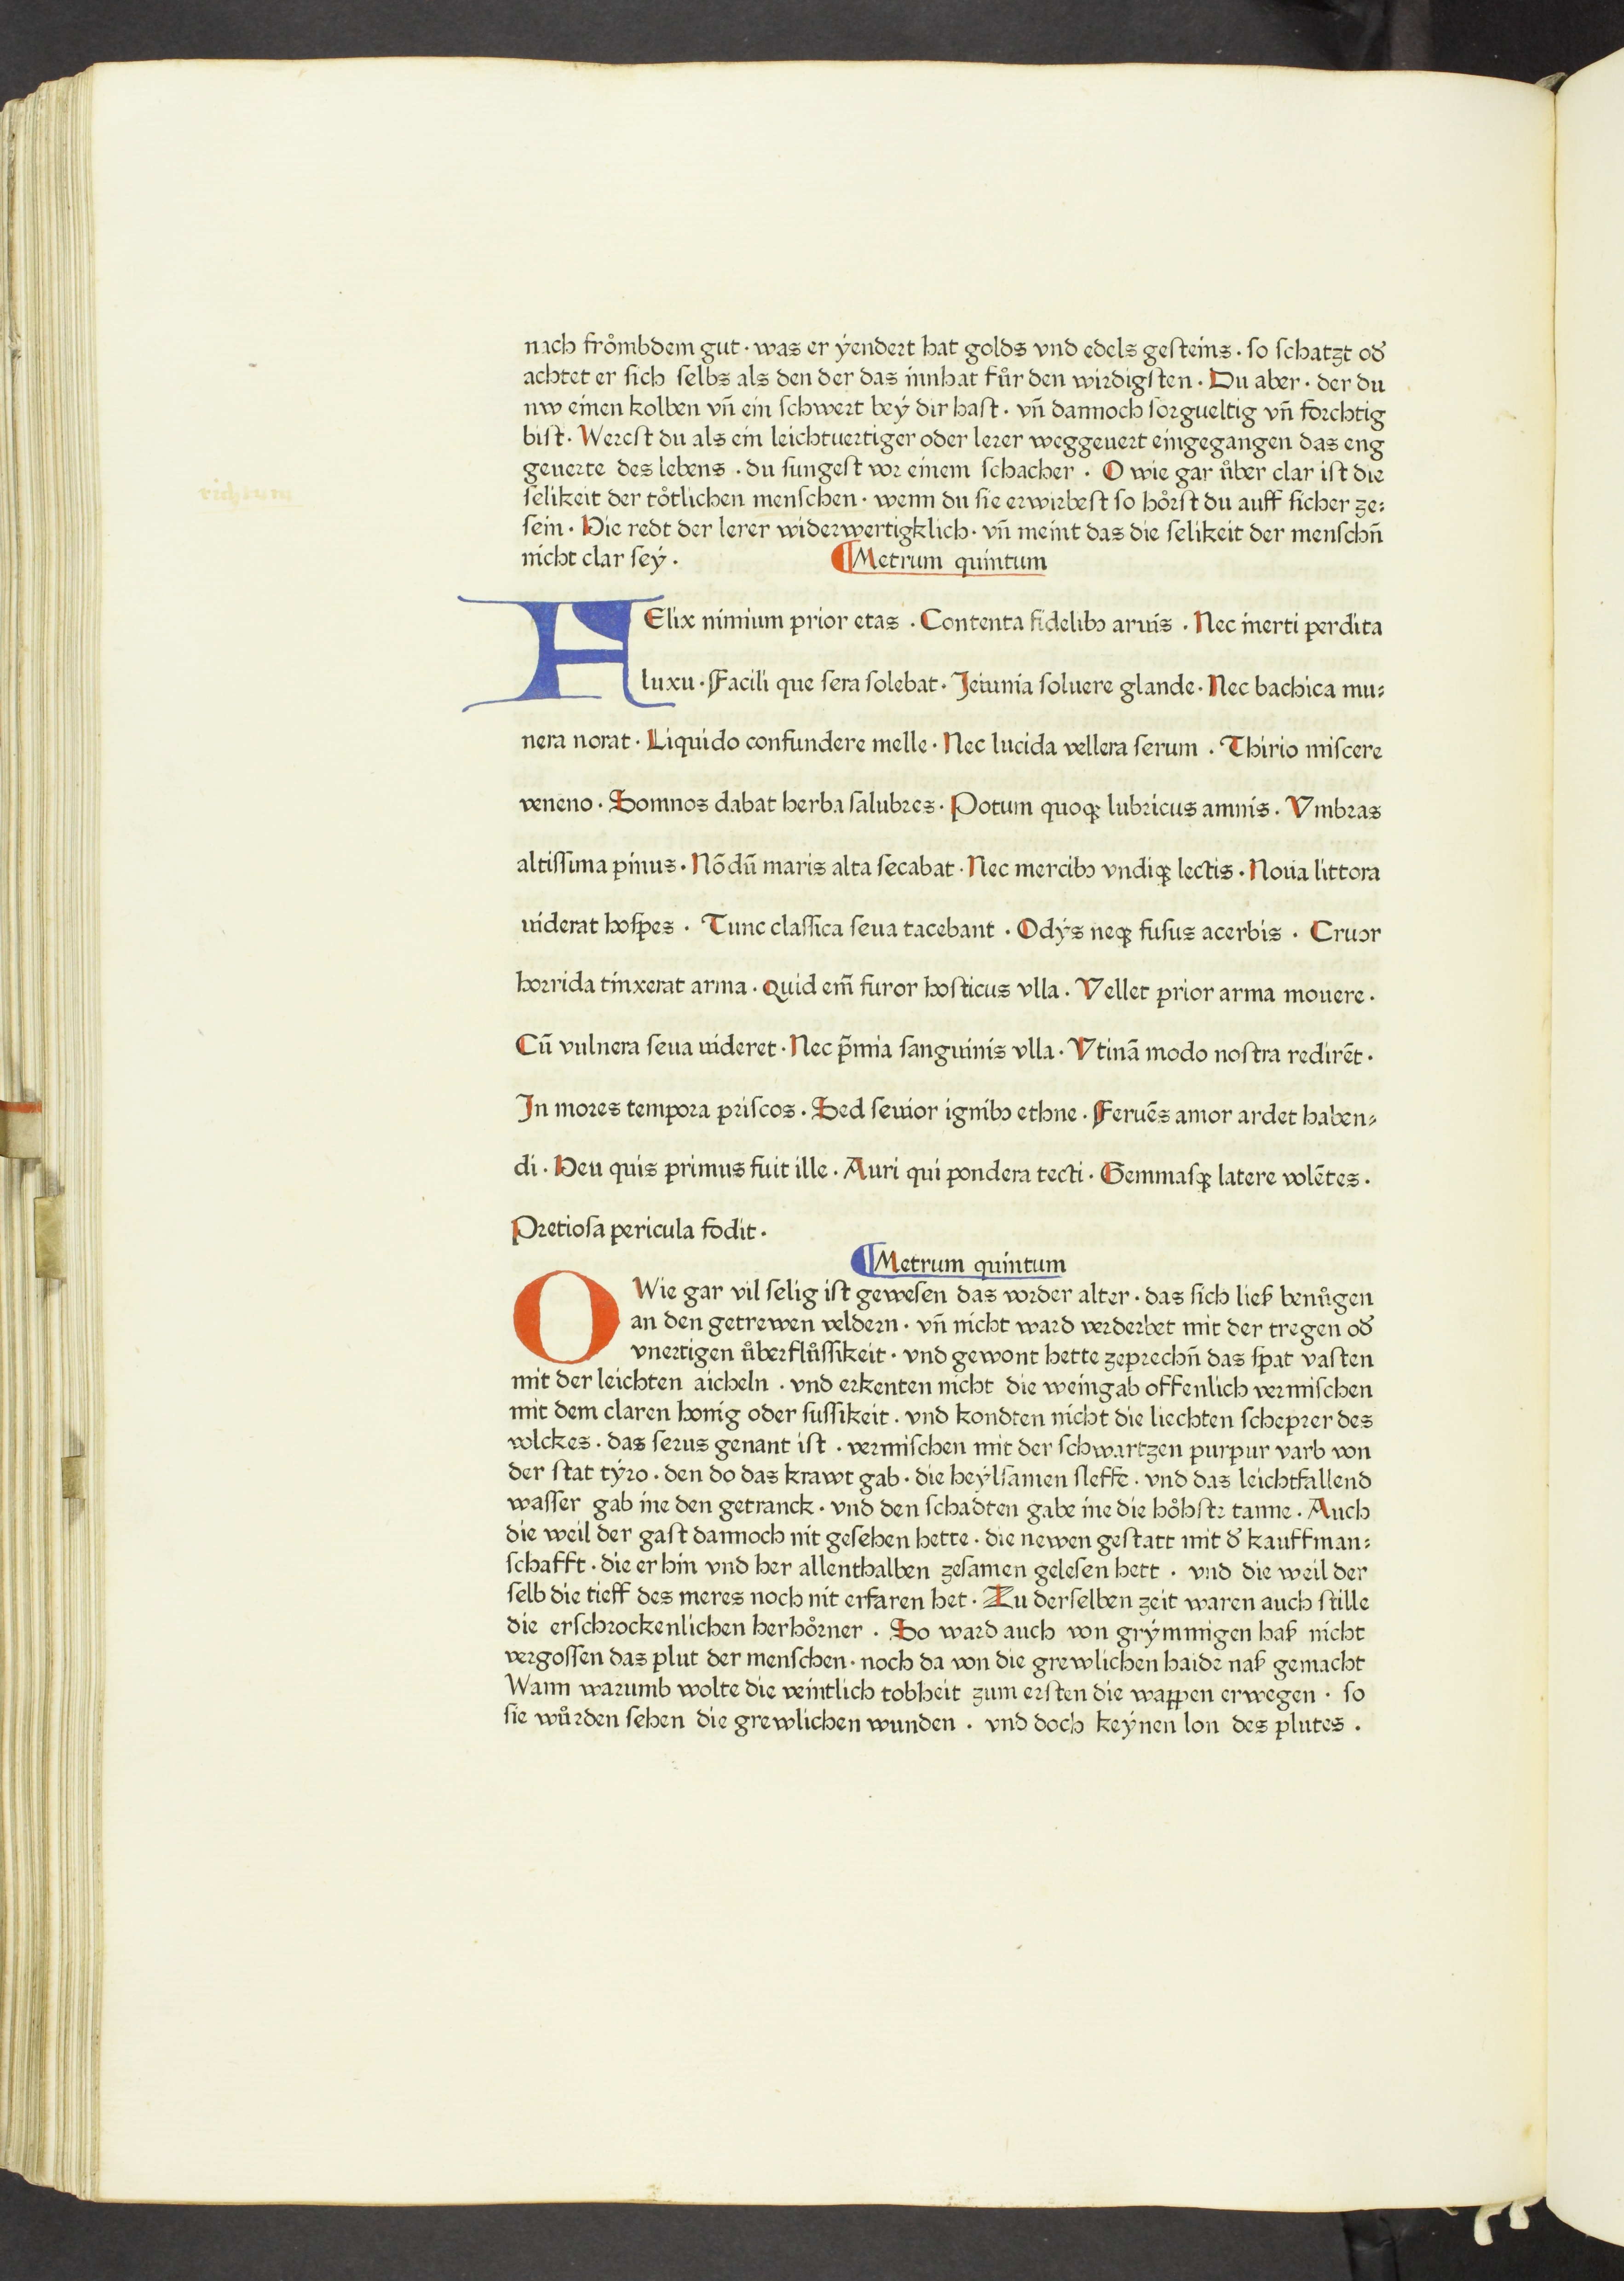 nach frőmbdem gut · was er ÿendert hat golds vnd edels gesteins · so schatzt oď
achtet er sich selbs als den der das innhat fůr den wirdigsten · Du aber · der du
nw einen kolben vn̄ ein schwert beÿ dir hast · vn̄ dannoch sorgueltig vn̄ forchtig
bist · Werest du als ein leichtuertiger oder lerer weggeuert eingegangen das eng
geuerte des lebens · du sungest vor einem schacher · O wie gar ůber clar ist die
selikeit der toͤtlichen menschen · wenn du sie erwirbest so hoͤrst du auff sicher ze⸗
sein · Hie redt der lerer widerwertigklich · vn̄ meint das die selikeit der menschn̄
nicht clar seÿ ·
¶ Metrum quintum
FElix nimium prior etas · Contenta fidelibꝰ aruis · Nec inerti perdita
luxu · Facili que sera solebat · Jeiunia soluere glande · Nec bachica mu⸗
nera norat · Liquido confundere melle · Nec lucida vellera serum · Thirio miscere
veneno · Somnos dabat herba salubres · Potum quoqꝫ lubricus amnis · Vmbras
altissima pinus · Nōdū maris alta secabat · Nec mercibꝰ vndiqꝫ lectis · Noua littora
uiderat hospes · Tunc classica seua tacebant · Odÿs neqꝫ fusus acerbis · Cruor
horrida tinxerat arma · Quid em̄ furor hosticus vlla · Vellet prior arma mouere ·
Cū vulnera seua uideret · Nec p̄mia sanguinis vlla · Vtinā modo nostra redirēt ·
In mores tempora priscos · Sed seuior ignibꝰ ethne · Feruēs amor ardet haben⸗
di · Heu quis primus fuit ille · Auri qui pondera tecti · Gemmasqꝫ latere volētes ·
Pretiosa pericula fodit ·
¶ Metrum quintum
O Wie gar vil selig ist gewesen das vorder alter · das sich ließ benůgen
an den getrewen veldern · vn̄ nicht ward verderbet mit der tregen oď
vnertigen ůberflůssikeit · vnd gewont hette zeprechn̄ das spat vasten
mit der leichten aicheln · vnd erkenten nicht die weingab offenlich vermischen
mit dem claren honig oder sussikeit · vnd kondten nicht die liechten scheprer des
volckes · das serus genant ist · vermischen mit der schwartzen purpur varb von
der stat tÿro · den do das krawt gab · die heÿlsamen sleffe · vnd das leichtfallend
wasser gab ine den getranck · vnd den schadten gabe ine die hoͤhste tanne · Auch
die weil der gast dannoch nit gesehen hette · die newen gestatt mit ď kauffman⸗
schafft · die er hin vnd her allenthalben zesamen gelesen hett · vnd die weil der
selb die tieff des meres noch nit erfaren het · Zu derselben zeit waren auch stille
die erschrockenlichen herhoͤrner · So ward auch von grÿmmigen haß nicht
vergossen das plut der menschen · noch da von die grewlichen haide naß gemacht
Wann warumb wolte die veintlich tobheit zum ersten die wappen erwegen · so
sie wůrden sehen die grewlichen wunden · vnd doch keÿnen lon des plutes ·
richtum